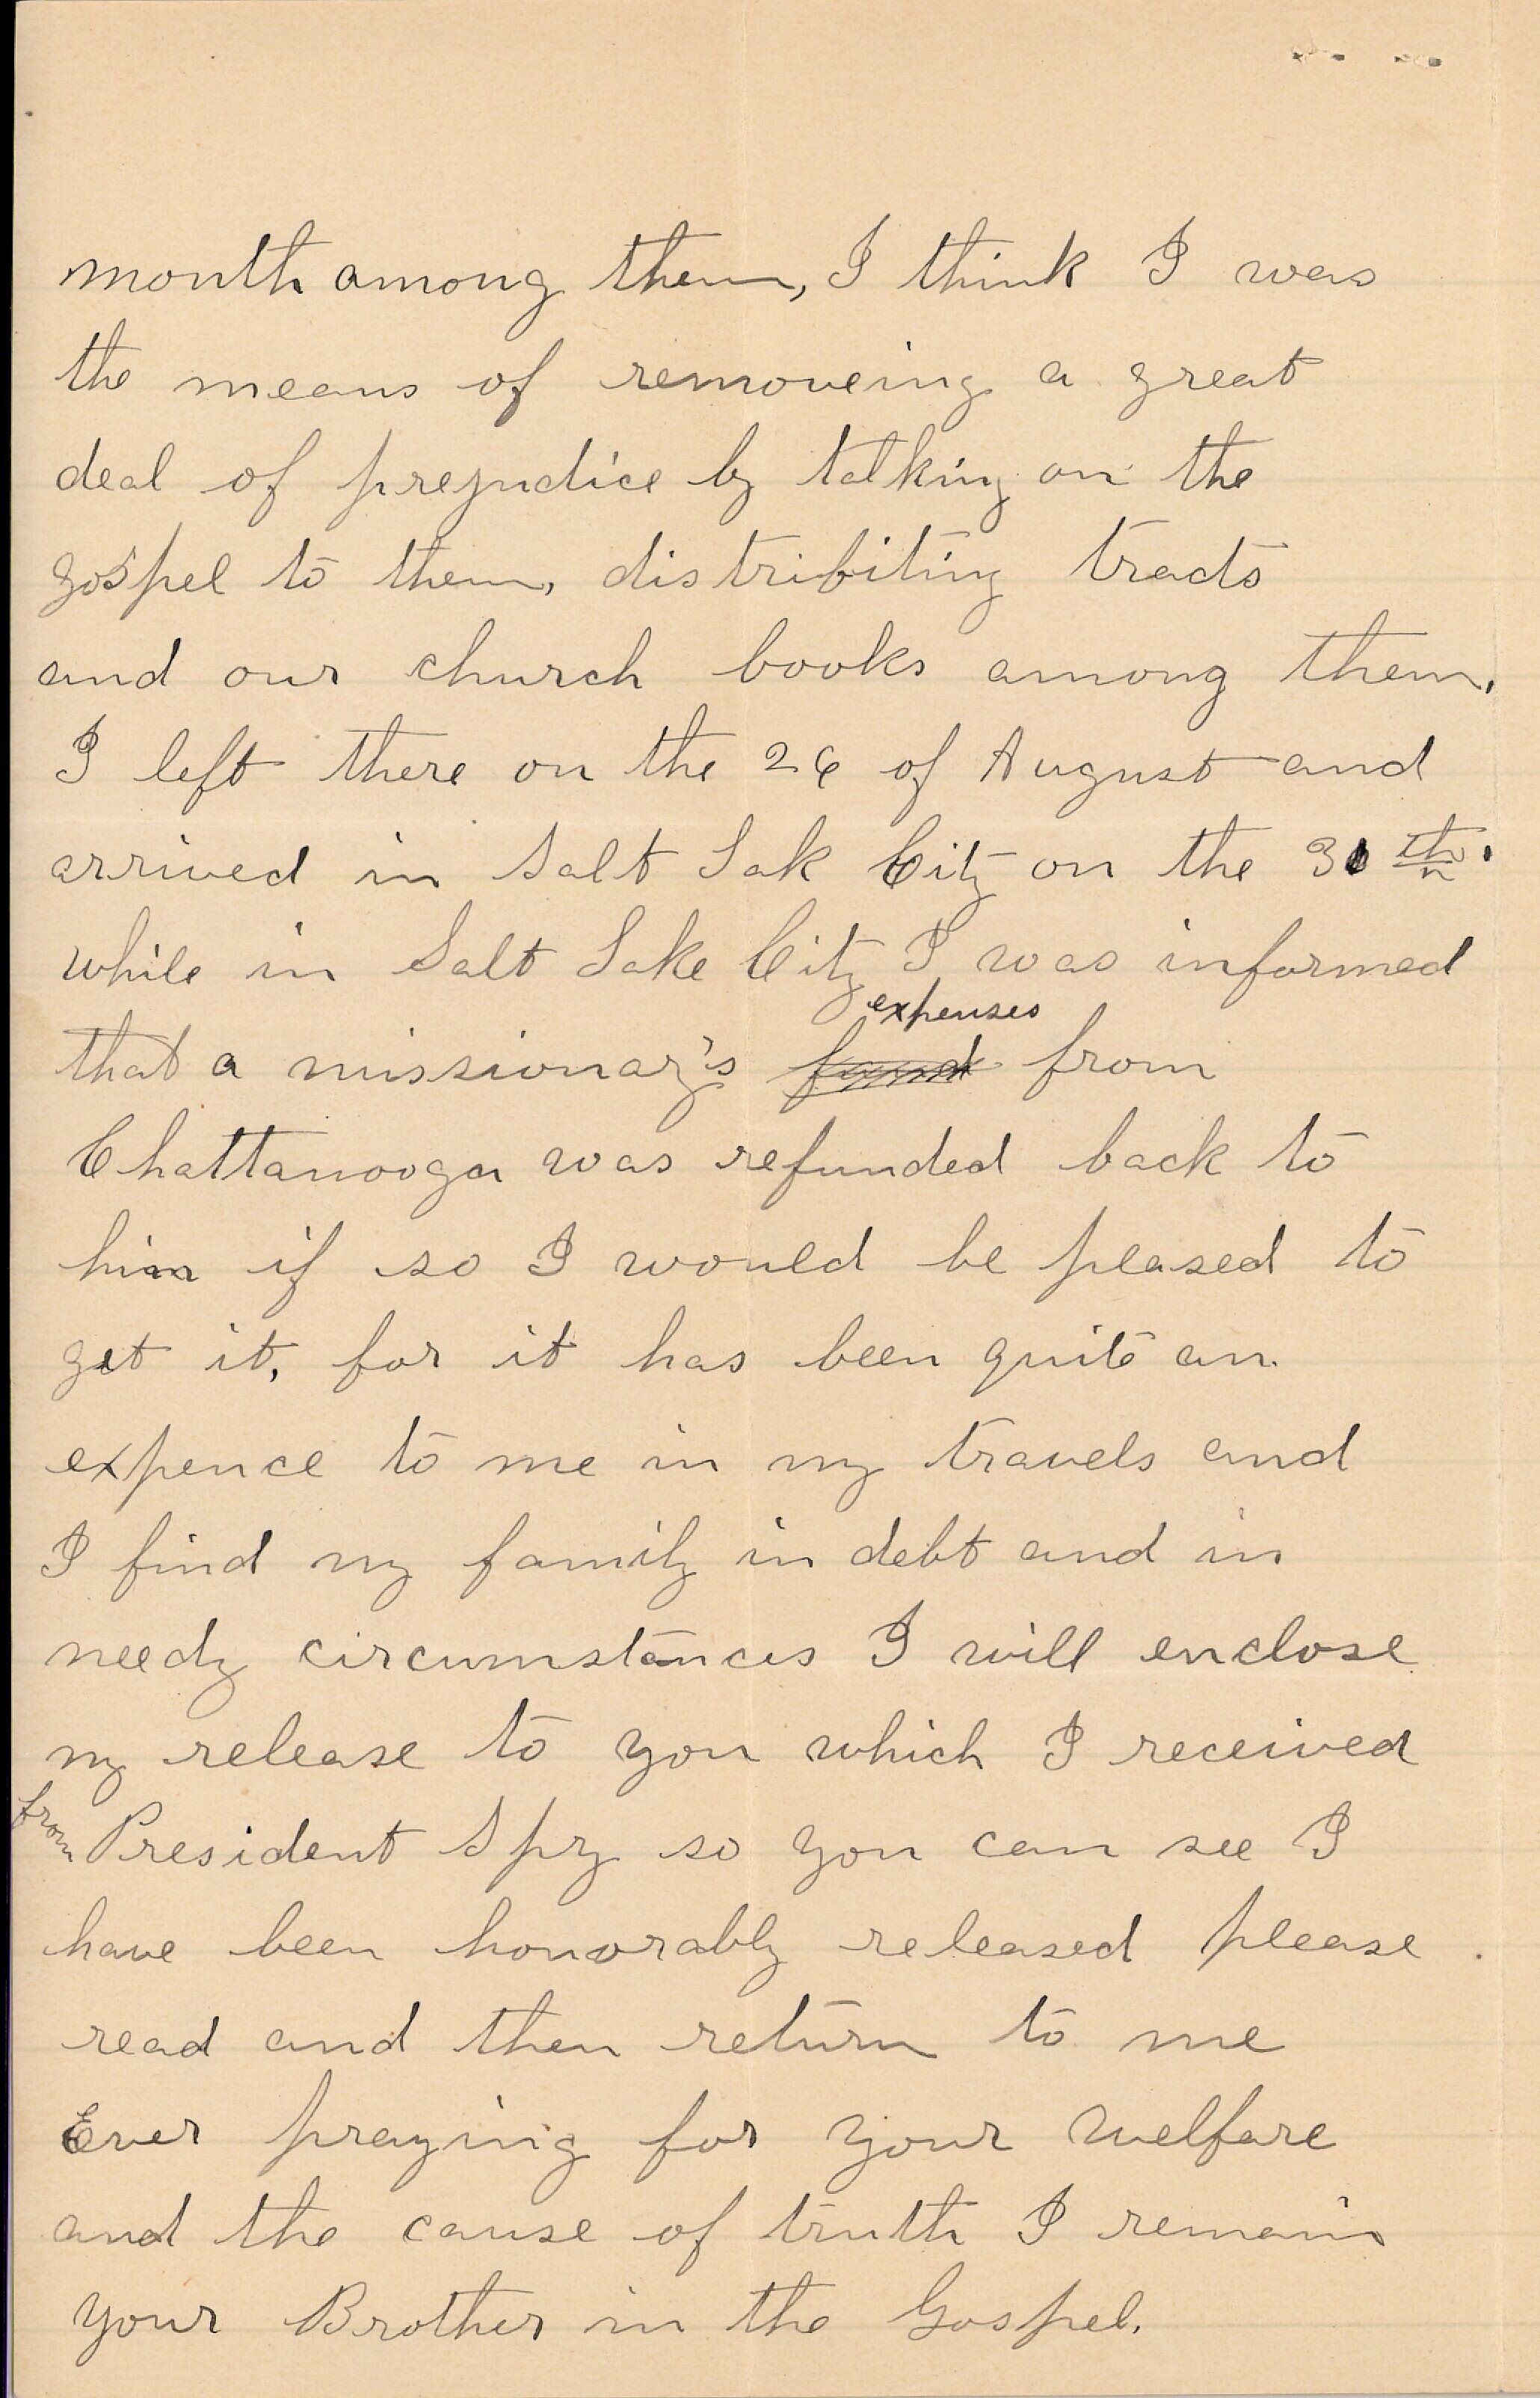 month among them, I think I was
the means of removeing a great
deal of prejudice by talking on the
gospel to them, distribiting tracts
and our church books among them.
I left there on the 26 of August and
arrived in Salt Lak City on the 31th.
while in Salt Lake City I was informed
expenses
that a missionary's fund from
Chattanooga was refunded back to
him if so I would be pleased to
get it, for it has been quite an
expence to me in my travels and
I find my family in debt and in
needy circumstances I will enclose
my release to you which I received
from President Spry so you can see I
have been honorably released please
read and then return to me
Ever praying for your welfare
and the cause of truth I remain
your Brother in the Gospel.